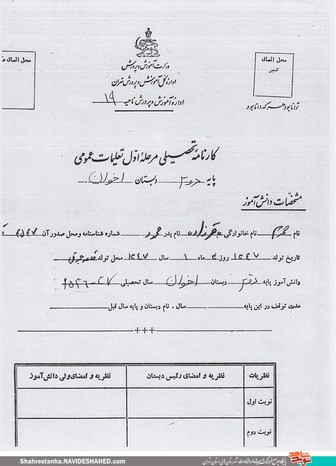 محل الصاق
وزارت آموزش و پرورش
اداره کل آموزش و پرورش تهران
اداره آموزش و پرورش ناحیه ۱۹
محل الصاق
توانا بود هر که دانا بود
کارنامه تحصیلی مرحله اول تعلیمات عمومی
پایه دوم دبستان اخوان
مشخصات دانش آموز
نام نام خانوادگی نام پدر محمود شماره شناسنامه و محل صدور آن
تاریخ تولد ۱۳۴۷ روز ماه ۱ سال ۱۳۴۷ محل تولد
دانش آموز پایه دوم دبستان اخوان سال تحصیلی
مدت توقف در این پایه سال . نام دبستان و پایه سال قبل
+++
نظریات نظریه و امضای رئیس دبستان نظریه و امضای ولی دانش آموز
نوبت اول
نوبت دوم
Shahrestanha.NAVIDESHAHED.com